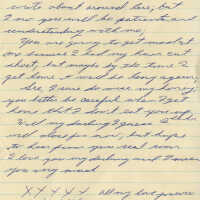 write about around here, but
I know you will be patient and
understanding with me,
You are going to get mad at
me because I had my hair cut
short, but maybe by the time I
get home it will be long again,
Gee, I sure do miss my honey,
you better be careful when I get
home that I don't eat you up
Well my darling I guess I
will close for now, but hope
to hear from you real soon.
I love you my darling and I miss
you very much
X X X X X All my love forever